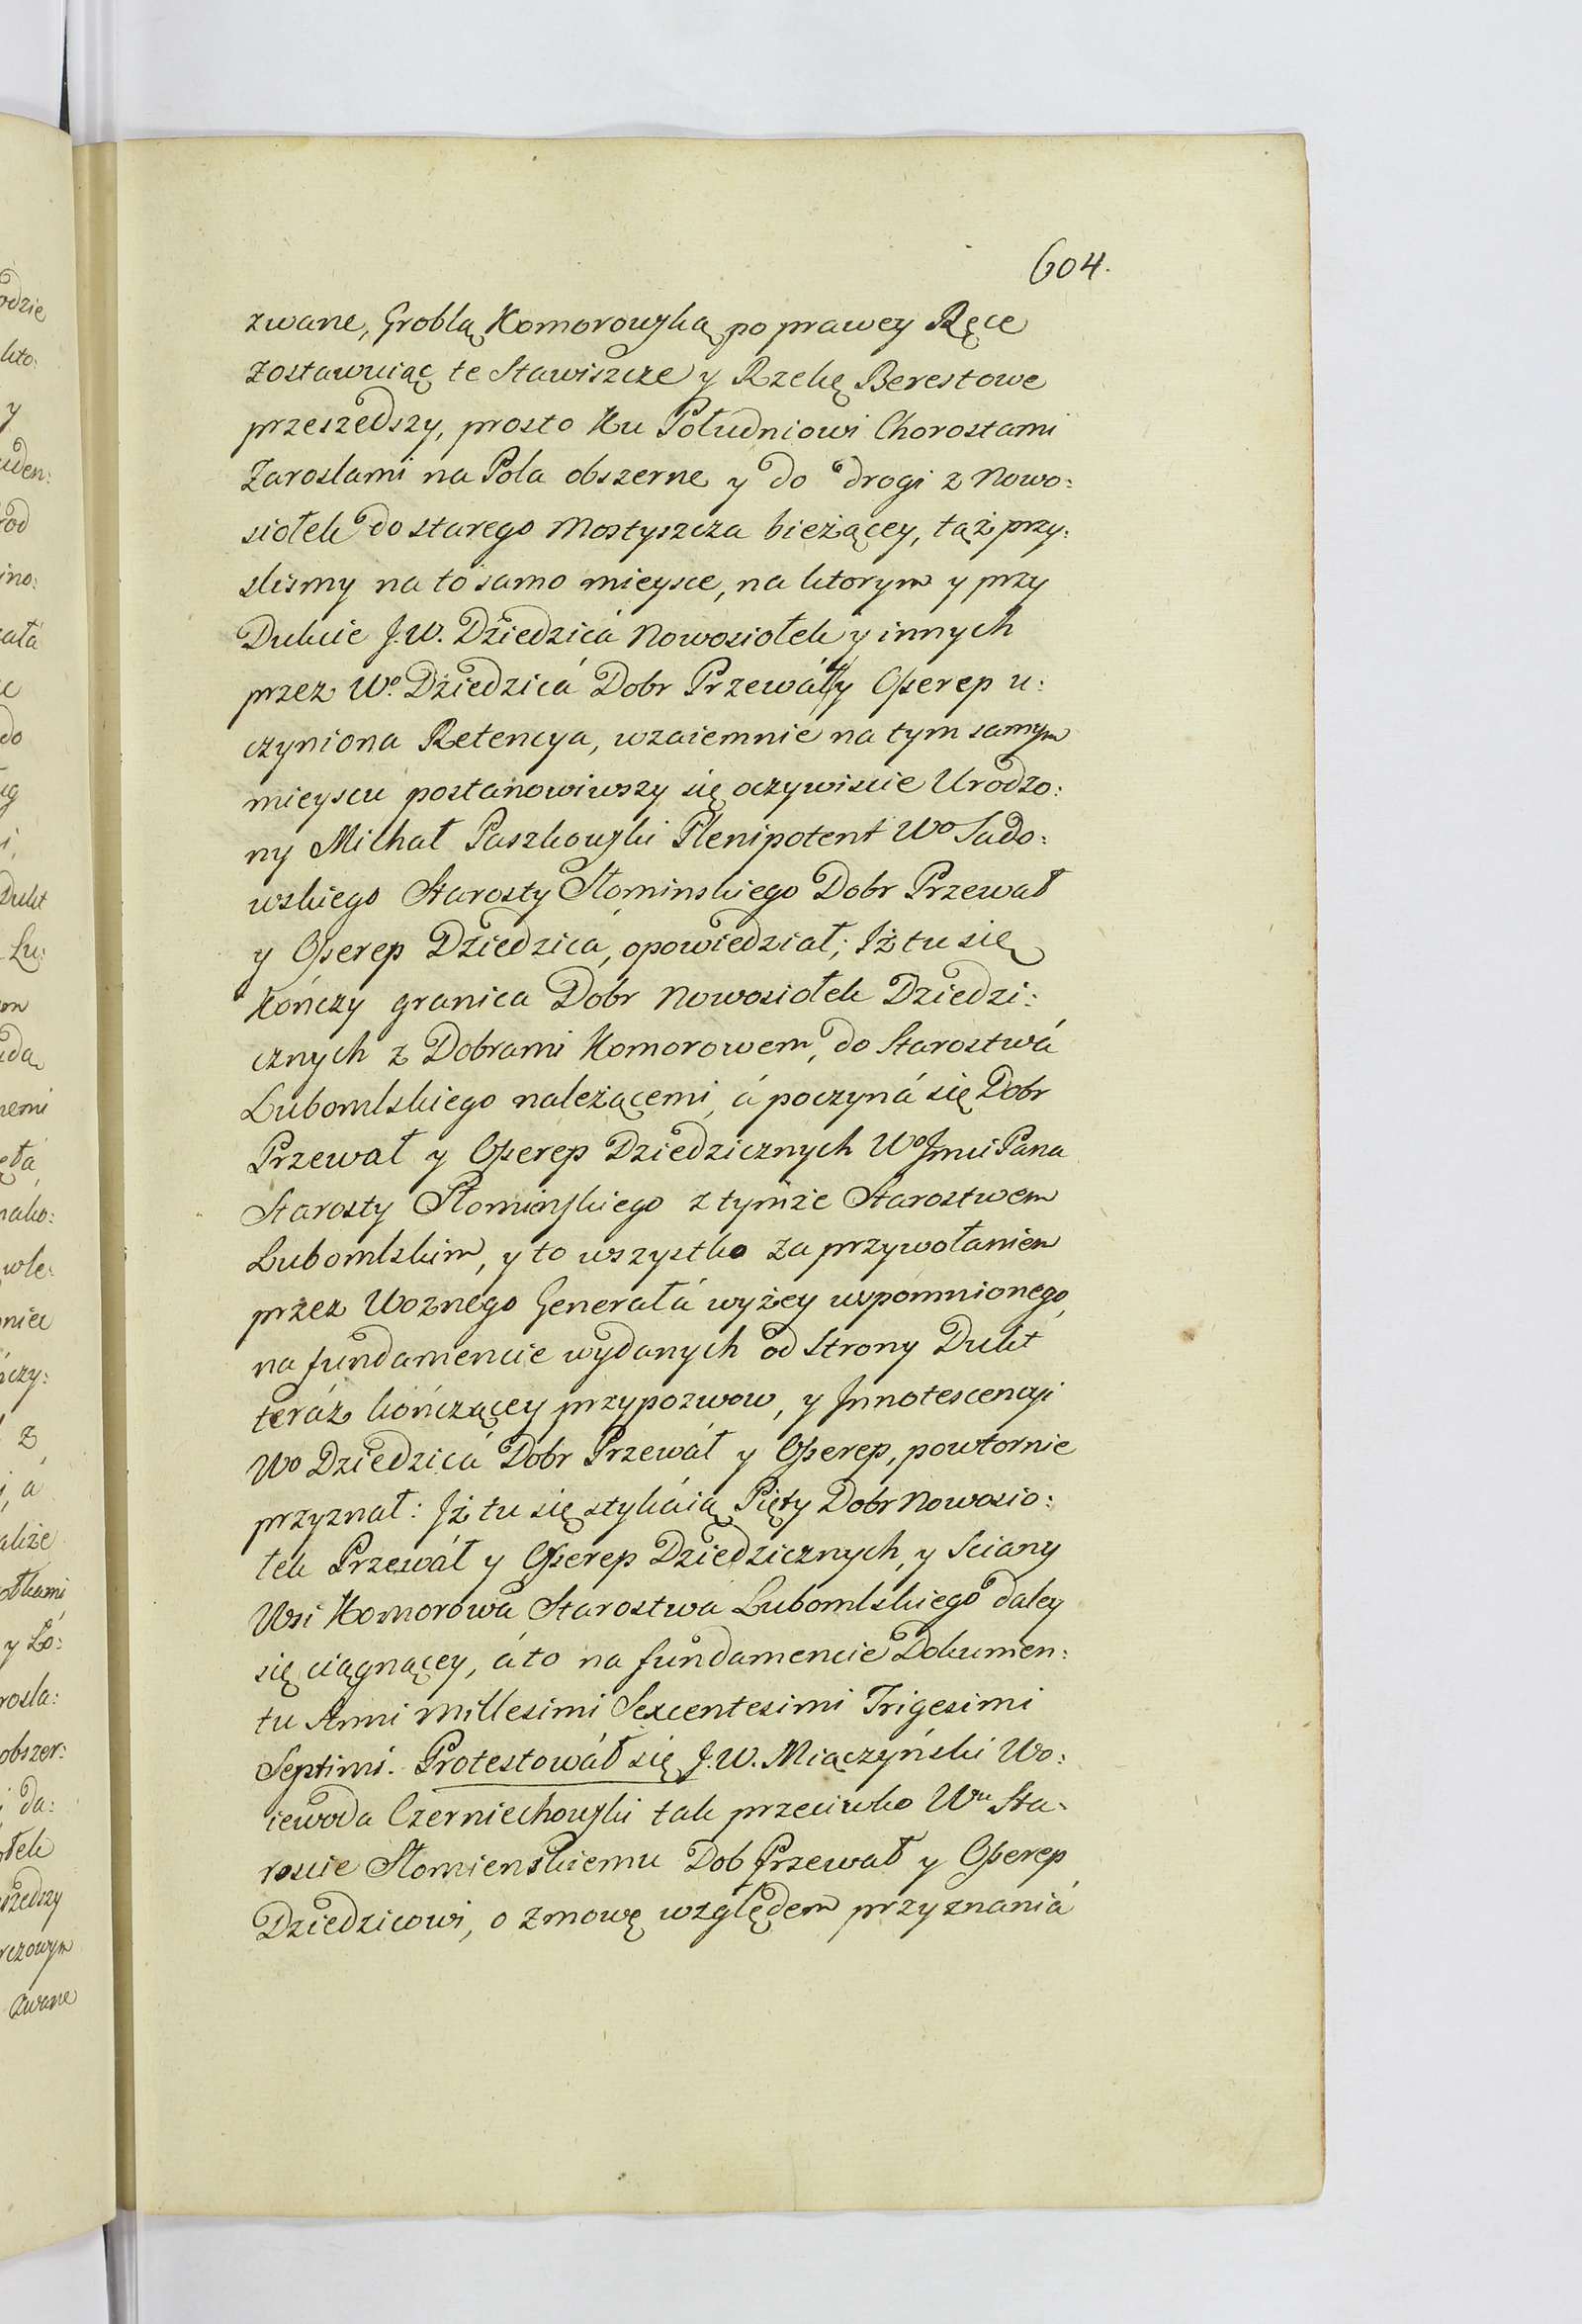 604.
zwane, Groblą Komorowską po prawey Ręce
zostawuiąc te Stawiszcze y Rzekę Berestowe
przeszedszy, prosto Ku Południowi Chorostami
Zaroslami na Pola obszerne y do drogi z Nowo:
siołek do starego Mostyszcza bieżącey, tąż przy:
slismy na to samo mieysce, na ktorym y przy
Dukcie J.W. Dziedzicá Nowosiołek y innych
przez Wº. Dziedzicá Dobr Przewáły Osserep u:
czyniona Retencya, wzaiemnie na tym samym
mieyscu postanowiwszy się oczywiscie Urodzo:
ny Michał Paszkowski Plenipotent Wº Sado:
wskiego Starosty Słominskiego Dobr Przewał
y Osserep Dziedzicá, opowiedział; Iż tu się
Kończy granica Dobr Nowosiołek Dziedzi:
cznych z Dobrami Komorowem, do Starostwá
Lubomlskiego należącemi, á poczyná się Dobr
Przewał y Osserep Dziedzicznych Wº Jmci Pana
Starosty Słominskiego z tymże Starostwem
Lubomlskim, y to wszystko za przywołaniem
przez Woznego Generałá wyżey wspomnionego,
na fundamencie wydanych od Strony Dukt
teráz kończącey przypozwow, y Jnnotescencyi
Wº Dziedzicá Dobr Przewáł y Osserep, powtornie
przyznał: Jż tu się stykáią Pięty Dobr Nowosio:
łek Przewáł y Osserep Dziedzicznych, y Sciany
Wsi Komorowa Starostwa Lubomlskiego daley
się ciągnącey, á to na fundamencie Dokumen:
tu Anni Millesimi Sexcentesimi Trigesimi
Septimi. Protestowáł się J.W. Miączyński Wo:
iewoda Czerniechowski tak przeciwko Wmu Sta:
roscie Słomienskiemu Dob Przewał y Osserep
Dziedzicowi, o zmowę względem przyznaniá